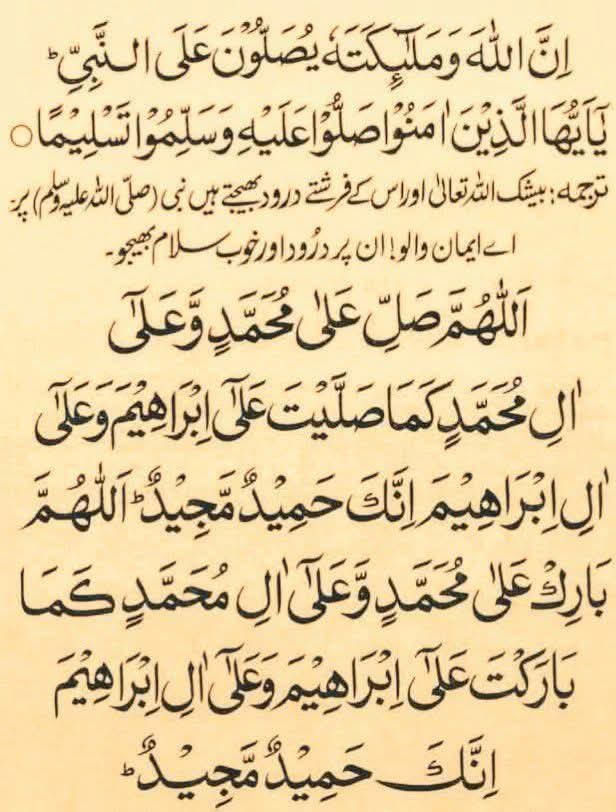 اِنَّ اللّٰهَ وَمَلٰٓئِكَتَهٗ يُصَلُّوْنَ عَلَى النَّبِيِّ ؕ
يٰٓاَيُّهَا الَّذِيْنَ اٰمَنُوْا صَلُّوْا عَلَيْهِ وَسَلِّمُوْا تَسْلِيْمًا ○
ترجمہ: بیشک اللہ تعالٰی اور اس کے فرشتے درود بھیجتے ہیں نبی (صلّی اللہ علیہ وسلّم) پر:
اے ایمان والو! ان پر درُود اور خوب سلام بھیجو۔
اَللّٰهُمَّ صَلِّ عَلٰى مُحَمَّدٍ وَّعَلٰٓى
اٰلِ مُحَمَّدٍ كَمَا صَلَّيْتَ عَلٰٓى اِبْرَاهِيْمَ وَعَلٰٓى
اٰلِ اِبْرَاهِيْمَ اِنَّكَ حَمِيْدٌ مَّجِيْدٌ ؕ اَللّٰهُمَّ
بَارِكْ عَلٰى مُحَمَّدٍ وَّعَلٰٓى اٰلِ مُحَمَّدٍ كَمَا
بَارَكْتَ عَلٰٓى اِبْرَاهِيْمَ وَعَلٰٓى اٰلِ اِبْرَاهِيْمَ
اِنَّكَ حَمِيْدٌ مَّجِيْدٌ ؕ